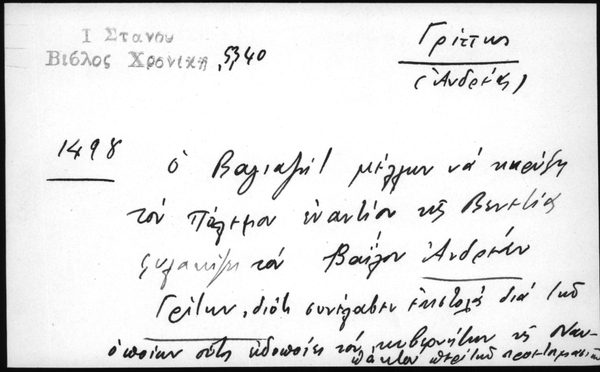 Ι Στανου
Βίβλος Χρονική, 540
Γρίττης
(Ἀνδρέας)
1498
ὁ Βαγιαζήτ μέλλων νά κηρύξῃ
τόν πόλεμον ἐναντίον τῆς Βενετίας
φυλακίζει τόν Βάϊλον Ἀνδρέαν
Γρίτην, διότι συνέλαβεν ἐπιστολάς διά τῶν
ὁποίων οὗτος εἰδοποίει τόν κυβερνήτην τῆς Ναυ-
πάκτου περί τῶν